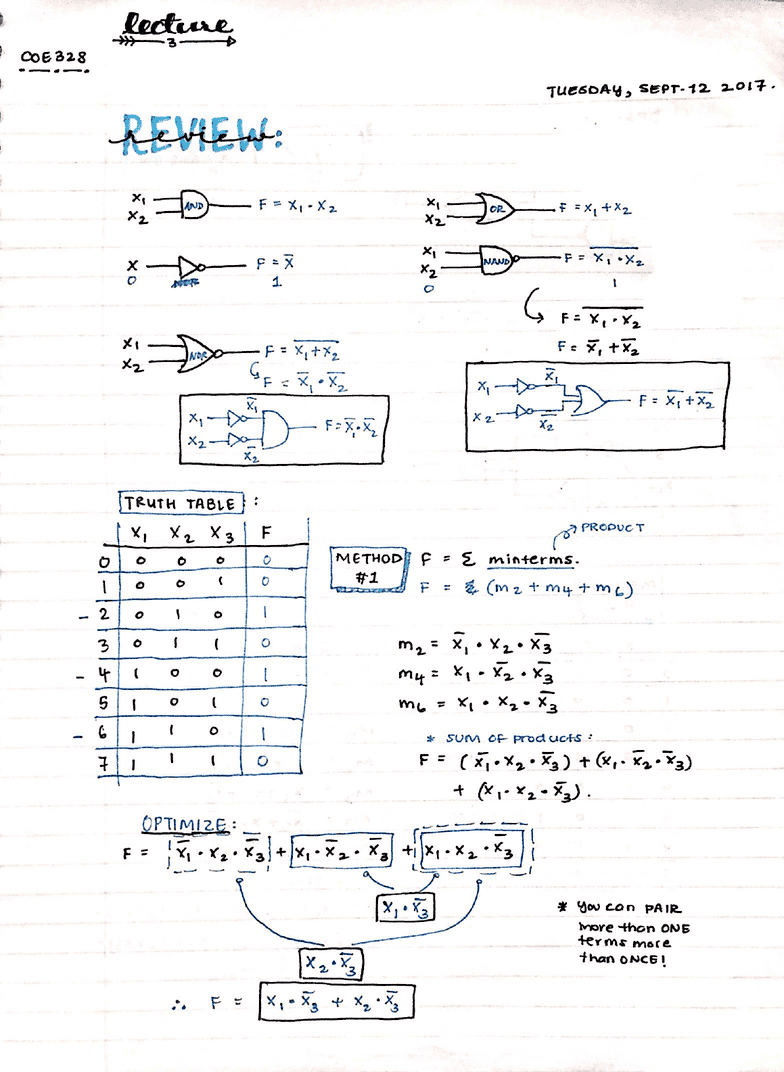 lecture
3
COE328
TUESDAY, SEPT.12 2017.
REVIEW:
review
X₁
X₂
AND
F = X₁ · X₂
X₁
X₂
OR
F = X₁ + X₂
X
0
F = X̅
1
X₁
X₂
0
NAND
F = X̅₁̅ ̅·̅ ̅X̅₂̅
1
F = X̅₁̅ ̅·̅ ̅X̅₂̅
F = X̅₁ + X̅₂
X₁
X₂
NOR
F = X̅₁̅ ̅+̅ ̅X̅₂̅
F = X̅₁ · X̅₂
X₁
X₂
X̅₁
X̅₂
F = X̅₁ · X̅₂
X₁
X₂
X̅₁
X̅₂
F = X̅₁ + X̅₂
TRUTH TABLE :
X₁ X₂ X₃ F
0 0 0 0 0
1 0 0 1 0
- 2 0 1 0 1
3 0 1 1 0
- 4 1 0 0 1
5 1 0 1 0
- 6 1 1 0 1
7 1 1 1 0
METHOD
#1
PRODUCT
F = Σ minterms.
F = Σ (m₂ + m₄ + m₆)
m₂ = X̅₁ · X₂ · X̅₃
m₄ = X₁ · X̅₂ · X̅₃
m₆ = X₁ · X₂ · X̅₃
* SUM OF Products :
F = (X̅₁ · X₂ · X̅₃) + (X₁ · X̅₂ · X̅₃)
+ (X₁ · X₂ · X̅₃).
OPTIMIZE:
F = X̅₁ · X₂ · X̅₃ + X₁ · X̅₂ · X̅₃ + X₁ · X₂ · X̅₃
X₁ · X̅₃
X₂ · X̅₃
* You can PAIR
more than ONE
terms more
than ONCE!
∴ F = X₁ · X̅₃ + X₂ · X̅₃